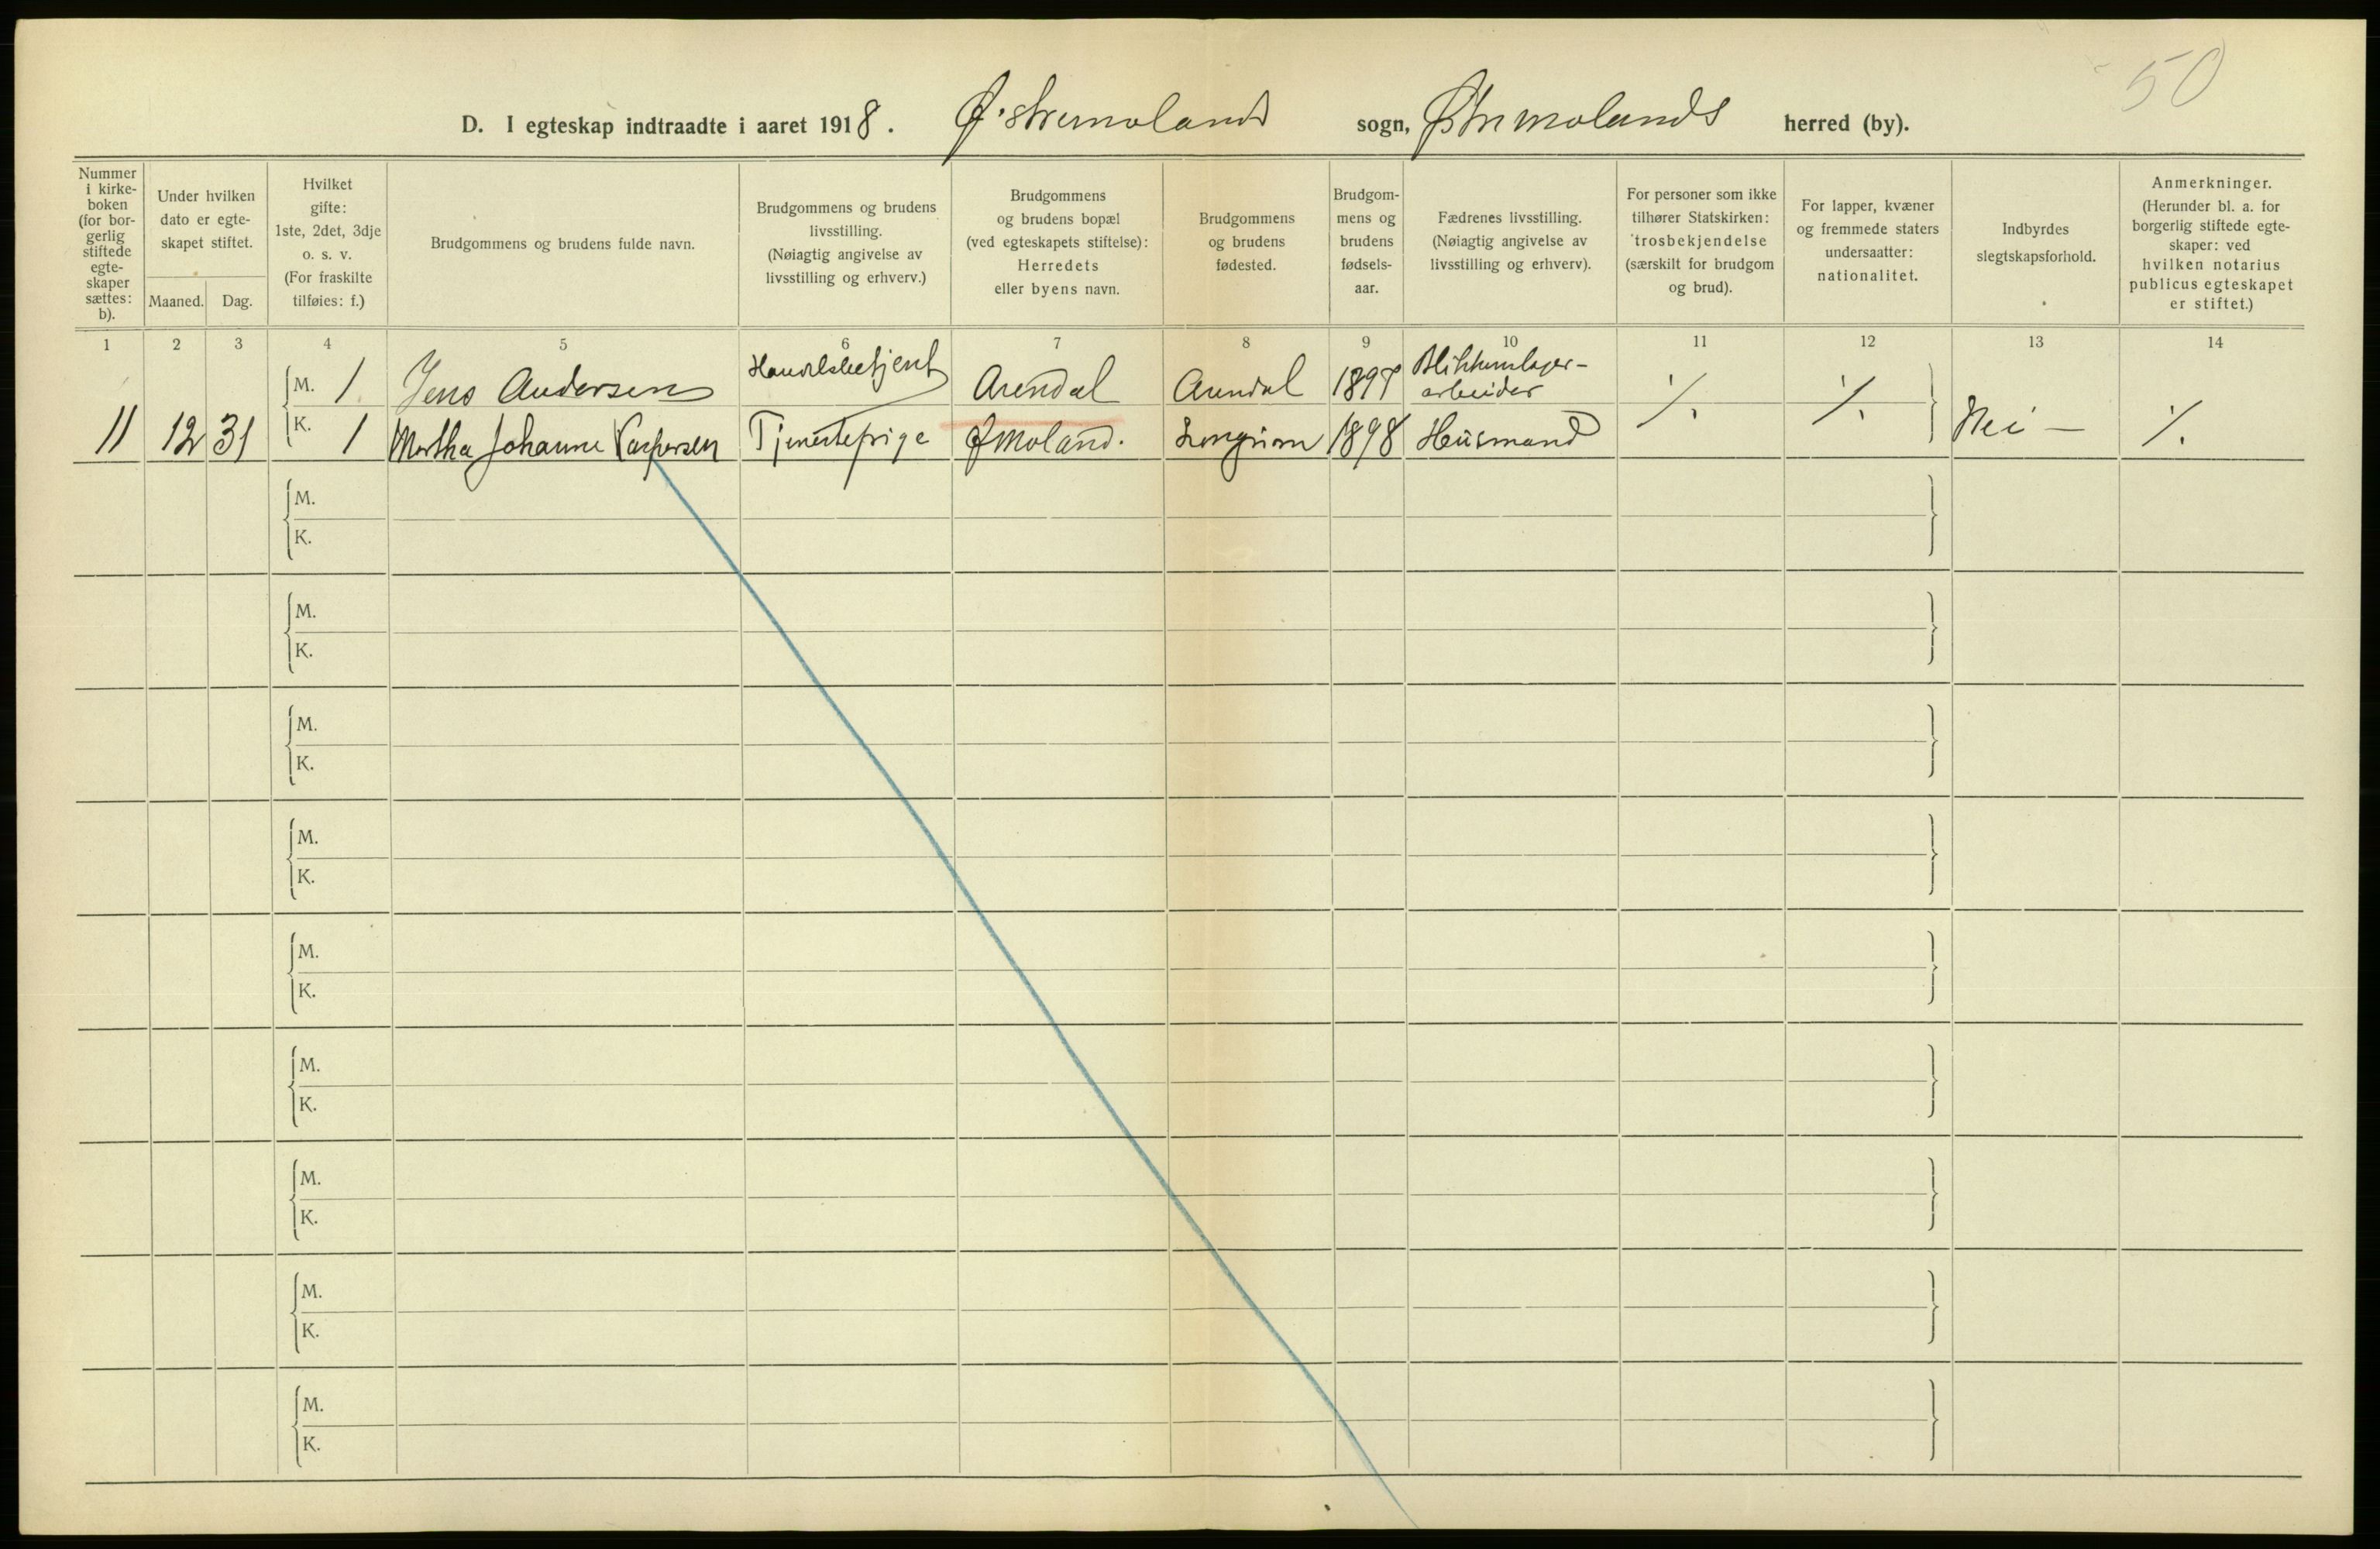 50
D. I egteskap indtraadte i aaret 1918. Østremolands sogn, Østremolands herred (by).
Nummer i kirke-boken (for bor-gerlig stiftede egte-skaper sættes: b).
Under hvilken dato er egte-skapet stiftet.
Maaned. Dag.
Hvilket gifte: 1ste, 2det, 3dje o. s. v. (For fraskilte tilføies: f.)
Brudgommens og brudens fulde navn.
Brudgommens og brudens livsstilling. (Nøiagtig angivelse av livsstilling og erhverv.)
Brudgommens og brudens bopæl (ved egteskapets stiftelse): Herredets eller byens navn.
Brudgommens og brudens fødested.
Brudgom-mens og brudens fødsels-aar.
Fædrenes livsstilling. (Nøiagtig angivelse av livsstilling og erhverv).
For personer som ikke tilhører Statskirken: trosbekjendelse (særskilt for brudgom og brud).
For lapper, kvæner og fremmede staters undersaatter: nationalitet.
Indbyrdes slegtskapsforhold.
Anmerkninger. (Herunder bl. a. for borgerlig stiftede egte-skaper: ved hvilken notarius publicus egteskapet er stiftet.)
1 2 3 4 5 6 7 8 9 10 11 12 13 14
M. 1 Jens Andersen Handelsbetjent Arendal Arendal 1897 Blikkenslager-arbeider ⁒ ⁒
11 12 31 K. 1 Martha Johanne Kaspersen Tjenestepige Ø Moland. 1898 Husmand Nei — ⁒
M.
K.
M.
K.
M.
K.
M.
K.
M.
K.
M.
K.
M.
K.
M.
K.
M.
K.